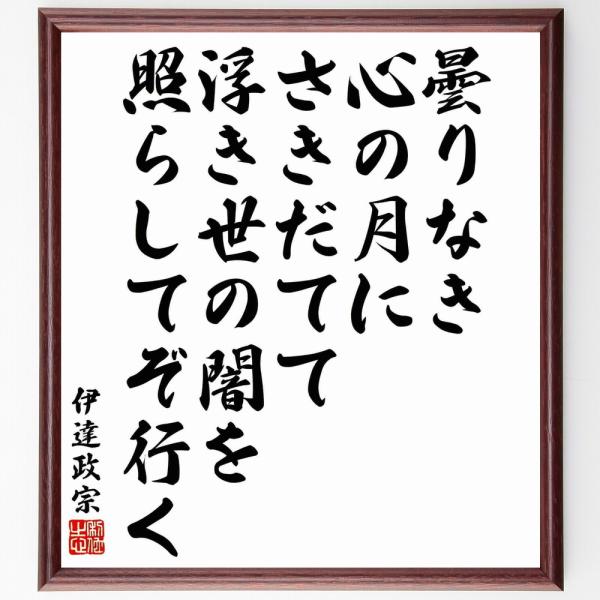 曇りなき
心の月に
さきだてて
浮き世の闇を
照らしてぞ行く
伊達政宗